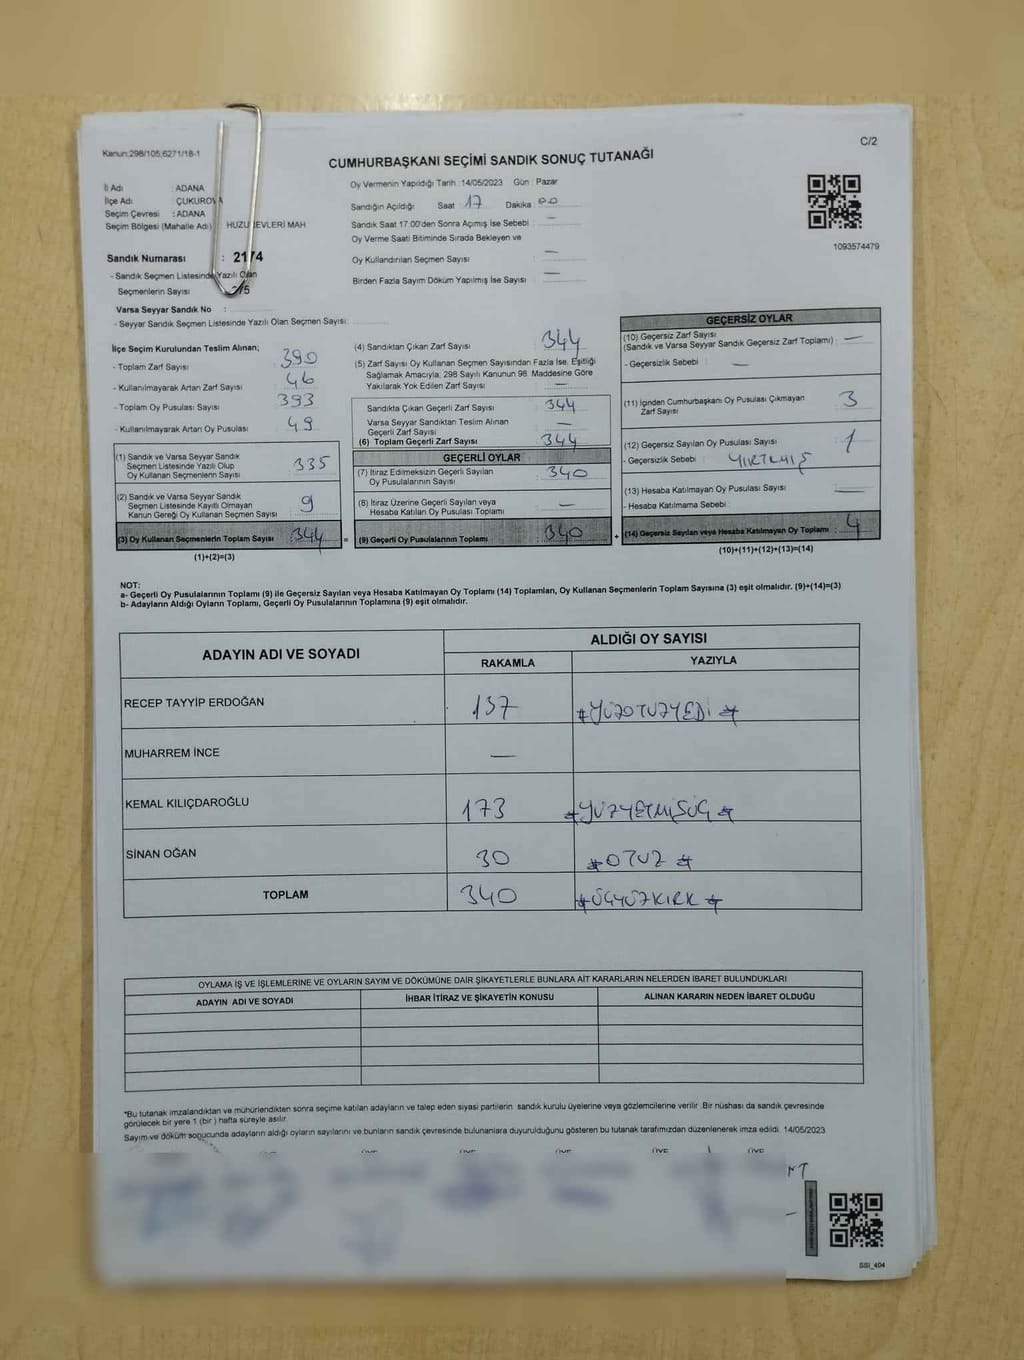 Kanun:298/105,6271/18-1
C/2
CUMHURBAŞKANI SEÇİMİ SANDIK SONUÇ TUTANAĞI
İl Adı : ADANA
İlçe Adı : ÇUKUROVA
Seçim Çevresi : ADANA
Seçim Bölgesi (Mahalle Adı) HUZUREVLERİ MAH
Sandık Numarası : 2174
- Sandık Seçmen Listesinde Yazılı Olan
Seçmenlerin Sayısı
Varsa Seyyar Sandık No :
- Seyyar Sandık Seçmen Listesinde Yazılı Olan Seçmen Sayısı:
Oy Vermenin Yapıldığı Tarih :14/05/2023 Gün : Pazar
Sandığın Açıldığı Saat 17 Dakika 00
Sandık Saat 17.00'den Sonra Açımış İse Sebebi : —
Oy Verme Saati Bitiminde Sırada Bekleyen ve
Oy Kullandırılan Seçmen Sayısı : —
Birden Fazla Sayım Döküm Yapılmış İse Sayısı : —
1093574479
İlçe Seçim Kurulundan Teslim Alınan;
- Toplam Zarf Sayısı : 390
- Kullanılmayarak Artan Zarf Sayısı : 46
- Toplam Oy Pusulası Sayısı : 393
- Kullanılmayarak Artan Oy Pusulası : 49
(1) Sandık ve Varsa Seyyar Sandık
Seçmen Listesinde Yazılı Olup
Oy Kullanan Seçmenlerin Sayısı : 335
(2) Sandık ve Varsa Seyyar Sandık
Seçmen Listesinde Kayıtlı Olmayan
Kanun Gereği Oy Kullanan Seçmen Sayısı : 9
(3) Oy Kullanan Seçmenlerin Toplam Sayısı : 344
(1)+(2)=(3)
(4) Sandıktan Çıkan Zarf Sayısı : 344
(5) Zarf Sayısı Oy Kullanan Seçmen Sayısından Fazla İse, Eşitliği
Sağlamak Amacıyla, 298 Sayılı Kanunun 98. Maddesine Göre
Yakılarak Yok Edilen Zarf Sayısı : —
Sandıkta Çıkan Geçerli Zarf Sayısı : 344
Varsa Seyyar Sandıktan Teslim Alınan
Geçerli Zarf Sayısı : —
(6) Toplam Geçerli Zarf Sayısı : 344
GEÇERLİ OYLAR
(7) İtiraz Edilmeksizin Geçerli Sayılan
Oy Pusulalarının Sayısı : 340
(8) İtiraz Üzerine Geçerli Sayılan veya
Hesaba Katılan Oy Pusulası Toplamı : —
= (9) Geçerli Oy Pusulalarının Toplamı : 340
GEÇERSİZ OYLAR
(10) Geçersiz Zarf Sayısı
(Sandık ve Varsa Seyyar Sandık Geçersiz Zarf Toplamı) : —
- Geçersizlik Sebebi : —
(11) İçinden Cumhurbaşkanı Oy Pusulası Çıkmayan
Zarf Sayısı : 3
(12) Geçersiz Sayılan Oy Pusulası Sayısı : 1
- Geçersizlik Sebebi : YIRTILMIŞ
(13) Hesaba Katılmayan Oy Pusulası Sayısı : —
- Hesaba Katılmama Sebebi :
+ (14) Geçersiz Sayılan veya Hesaba Katılmayan Oy Toplamı : 4
(10)+(11)+(12)+(13)=(14)
NOT:
a- Geçerli Oy Pusulalarının Toplamı (9) ile Geçersiz Sayılan veya Hesaba Katılmayan Oy Toplamı (14) Toplamları, Oy Kullanan Seçmenlerin Toplam Sayısına (3) eşit olmalıdır. (9)+(14)=(3)
b- Adayların Aldığı Oyların Toplamı, Geçerli Oy Pusulalarının Toplamına (9) eşit olmalıdır.
ADAYIN ADI VE SOYADI
ALDIĞI OY SAYISI
RAKAMLA YAZIYLA
RECEP TAYYİP ERDOĞAN 137 *YÜZOTUZYEDİ*
MUHARREM İNCE —
KEMAL KILIÇDAROĞLU 173 *YÜZYETMİŞÜÇ*
SİNAN OĞAN 30 *OTUZ*
TOPLAM 340 *ÜÇYÜZKIRK*
OYLAMA İŞ VE İŞLEMLERİNE VE OYLARIN SAYIM VE DÖKÜMÜNE DAİR ŞİKAYETLERLE BUNLARA AİT KARARLARIN NELERDEN İBARET BULUNDUKLARI
ADAYIN ADI VE SOYADI İHBAR İTİRAZ VE ŞİKAYETİN KONUSU ALINAN KARARIN NEDEN İBARET OLDUĞU
*Bu tutanak imzalandıktan ve mühürlendikten sonra seçime katılan adayların ve talep eden siyasi partilerin sandık kurulu üyelerine veya gözlemcilerine verilir. Bir nüshası da sandık çevresinde
görülecek bir yere 1 (bir ) hafta süreyle asılır.
Sayım ve döküm sonucunda adayların aldığı oyların sayılarını ve bunların sandık çevresinde bulunanlara duyurulduğunu gösteren bu tutanak tarafımızdan düzenlenerek imza edildi. 14/05/2023
SSI_404